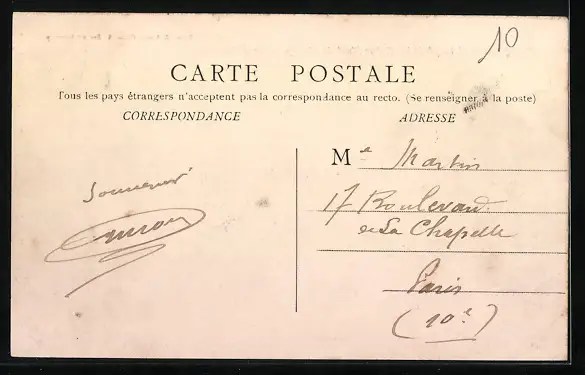 10
CARTE POSTALE
Tous les pays étrangers n'acceptent pas la correspondance au recto. (Se renseigner à la poste)
CORRESPONDANCE
ADRESSE
Me Martin
Souvenir
17 Boulevard
de La Chapelle
Paris
(10e)